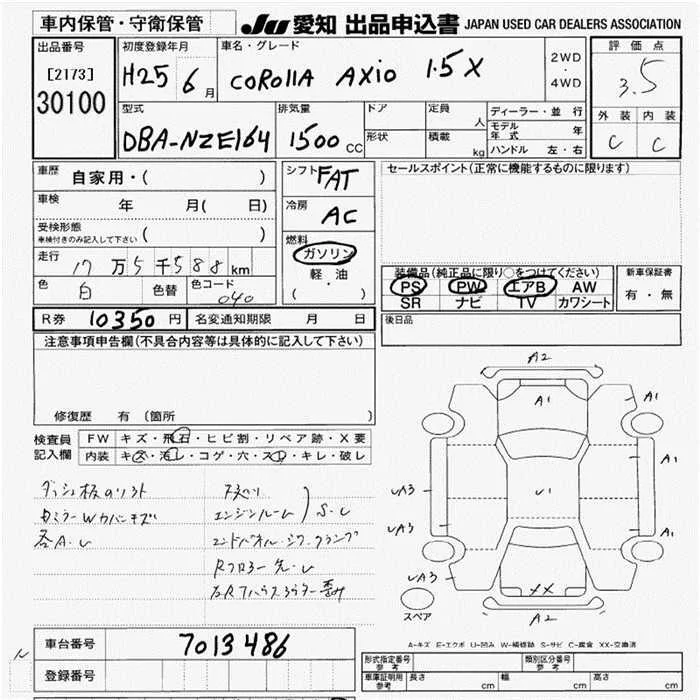 車内保管・守衛保管
JU 愛知 出品申込書 JAPAN USED CAR DEALERS ASSOCIATION
出品番号
[2173]
30100
初度登録年月
H25 6月
車名・グレード
COROllA AXio 1.5X
2WD
・
4WD
評価点
3.5
外装 内装
C C
型式
DBA-NZE164
排気量
1500 CC
ドア
形状
定員 人
積載 kg
ディーラー・並行
モデル年式 年
ハンドル 左・右
車歴 自家用・( )
車検 年 月( 日)
受検形態
車検付きのみ記入して下さい ( )
走行 17万5千588km
色 白 色替 色コード 040
シフト FAT
冷房 AC
燃料
ガソリン
軽・油
( )
セールスポイント(正常に機能するものに限ります)
装備品(純正品に限り○をつけてください)
PS PW エアB AW
SR ナビ TV カワシート
新車保証書
有・無
R券 10350円 名変通知期限 月 日
後日品
注意事項申告欄(不具合内容等は具体的に記入して下さい)
修復歴 有 〔箇所
検査員
記入欄
FW キズ・飛石・ヒビ割・リペア跡・X要
内装 キズ・汚レ・コゲ・穴・スレ・キレ・破レ
エンジンルーム
S・U
各A・U
A2
A1
A1
UA3
A1
U1
UA3
A1
UA3
XX
A2
スペア
A-キズ E-エクボ U-凹み W-補修跡 S-サビ C-腐食 XX-交換済
車台番号 7013486
登録番号
形式指定番号
参考
類別区分番号
参考
車庫証明用
参考
長さ cm 幅 cm 高さ cm